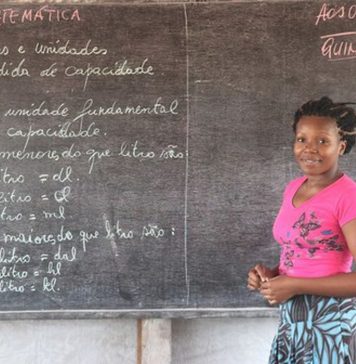 TEMÁTICA
AOS 0
os e unidades
QUIN
dida de capacidade.
unidade fundamental
capacidade.
menores do que litro são:
litro = dl.
litro = cl
litro = ml
maiores do que litro são:
litro = dal
olitro = hl
olitro = kl.